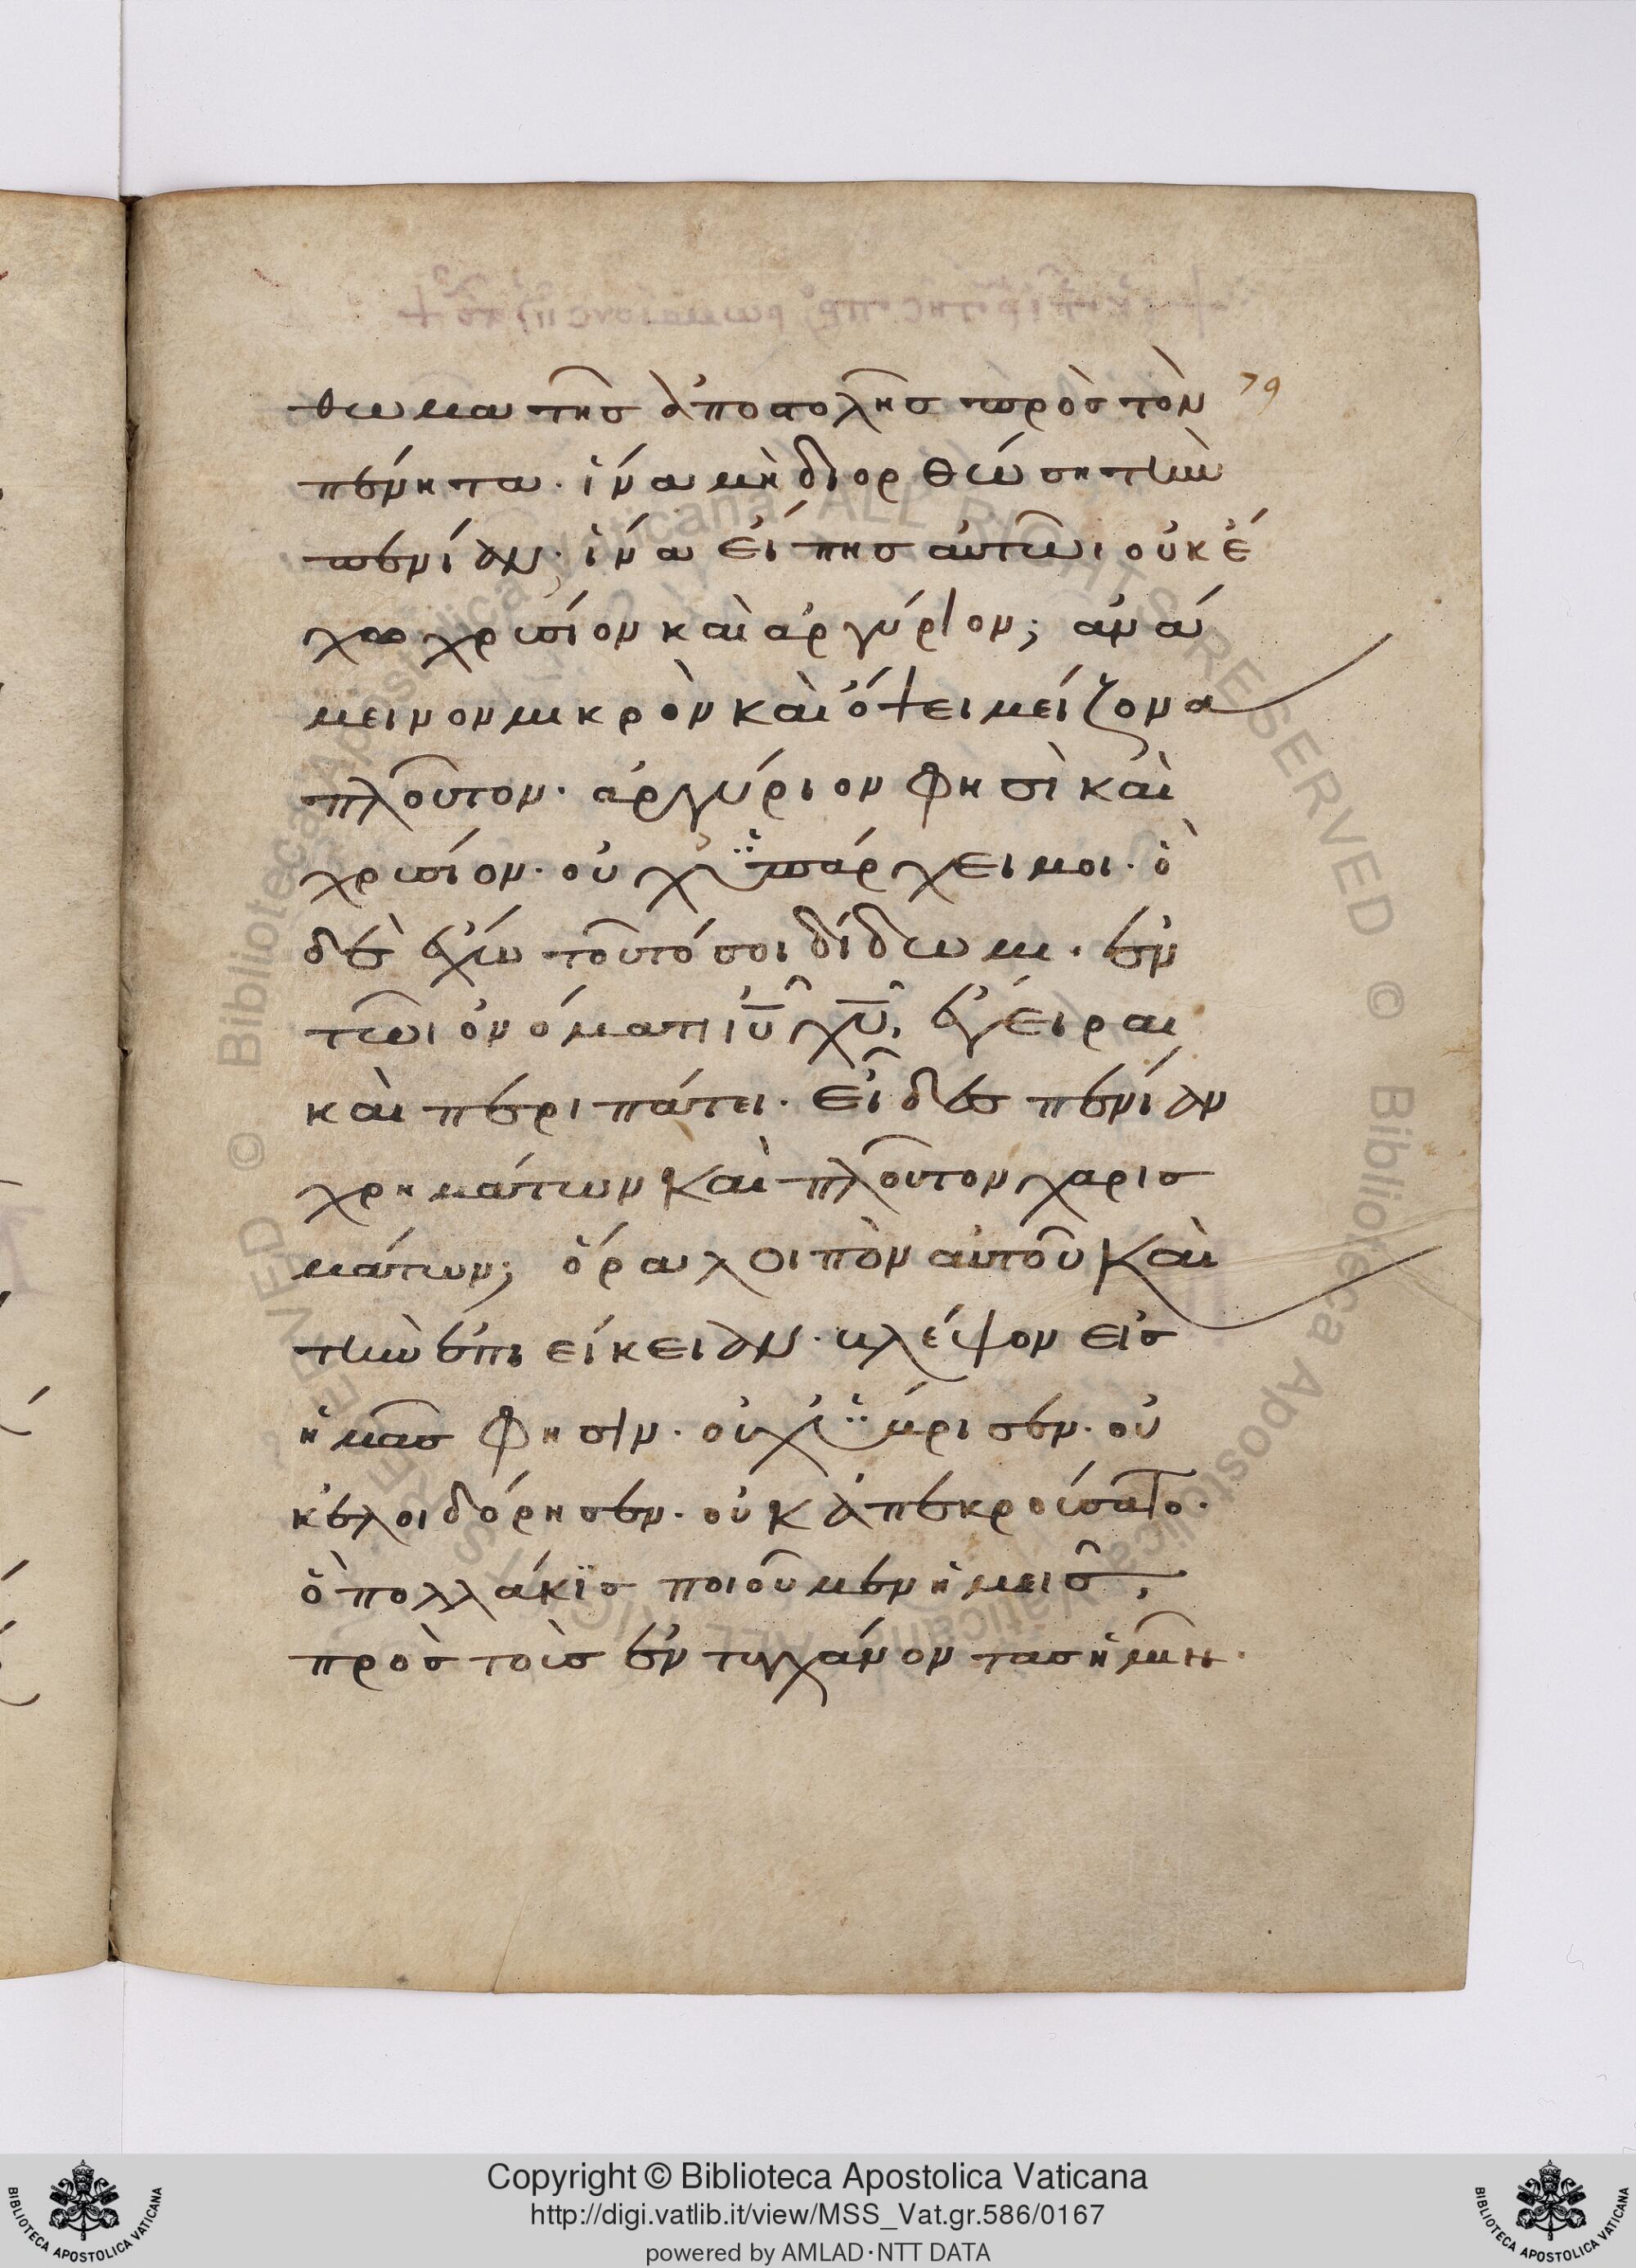 79
θωμα τῆσ ἀποστολῆσ πρὸσ τὸν
πένητα· ἵνα μὴ διορθώση τὴν
πενίαν· ἵνα εἴπησ αὐτῶι οὐκ έ
χω χρυσίον καὶ ἀργύριον; ἀνά
μεινον μικρὸν καὶ ὄψει μείζονα
πλοῦτον· ἀργύριον φησὶ καὶ
χρυσίον· οὐχ ὑπάρχει μοι· ὃ
δὲ ἔχω τοῦτό σοι δίδωμι· ἐν
τῶι ὀνόματι ἰῦ χῦ, ἔγειραι
καὶ περιπάτει· εἶδεσ πενίαν
χρημάτων καὶ πλοῦτον χαρισ
μάτων; ὅρα λοιπὸν αὐτοῦ καὶ
τὴν ἐπιείκειαν· βλέψον εἰσ
ἡμᾶσ φησίν· οὐχ ὕβρισεν· οὐ
κ ἐλοιδόρησεν· οὐκ ἀπεκρούσατο·
ὃ πολλάκϊσ ποιοῦμεν ἡμεῖσ,
πρὸσ τοὺσ ἐντυγχάνοντασ ἡμῖν·
Copyright © Biblioteca Apostolica Vaticana
http://digi.vatlib.it/view/MSS_Vat.gr.586/0167
powered by AMLAD·NTT DATA
BIBLIOTECA APOSTOLICA VATICANA
BIBLIOTECA APOSTOLICA VATICANA